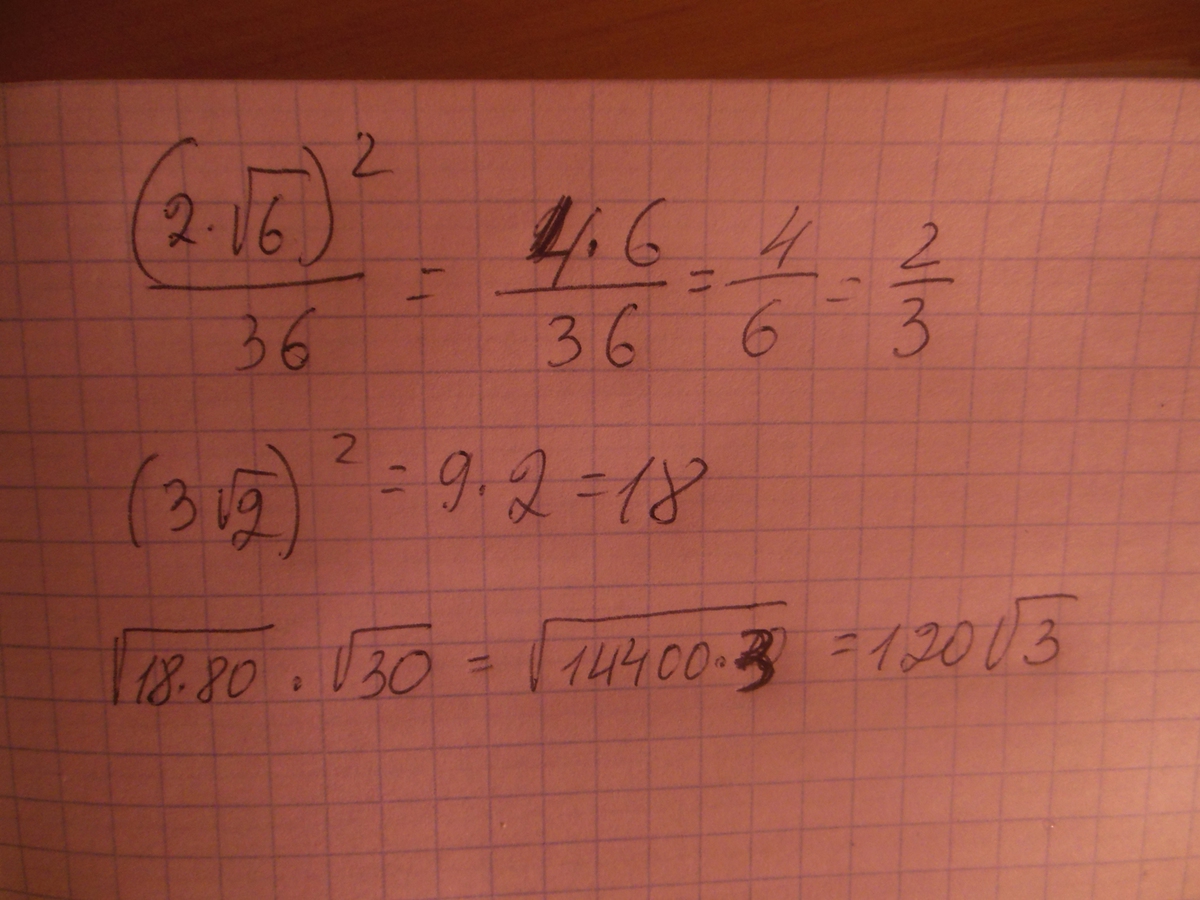 (2·√6)² / 36 = 4·6 / 36 = 4/6 = 2/3
(3√2)² = 9·2 = 18
√18·80 · √30 = √14400·3 = 120√3